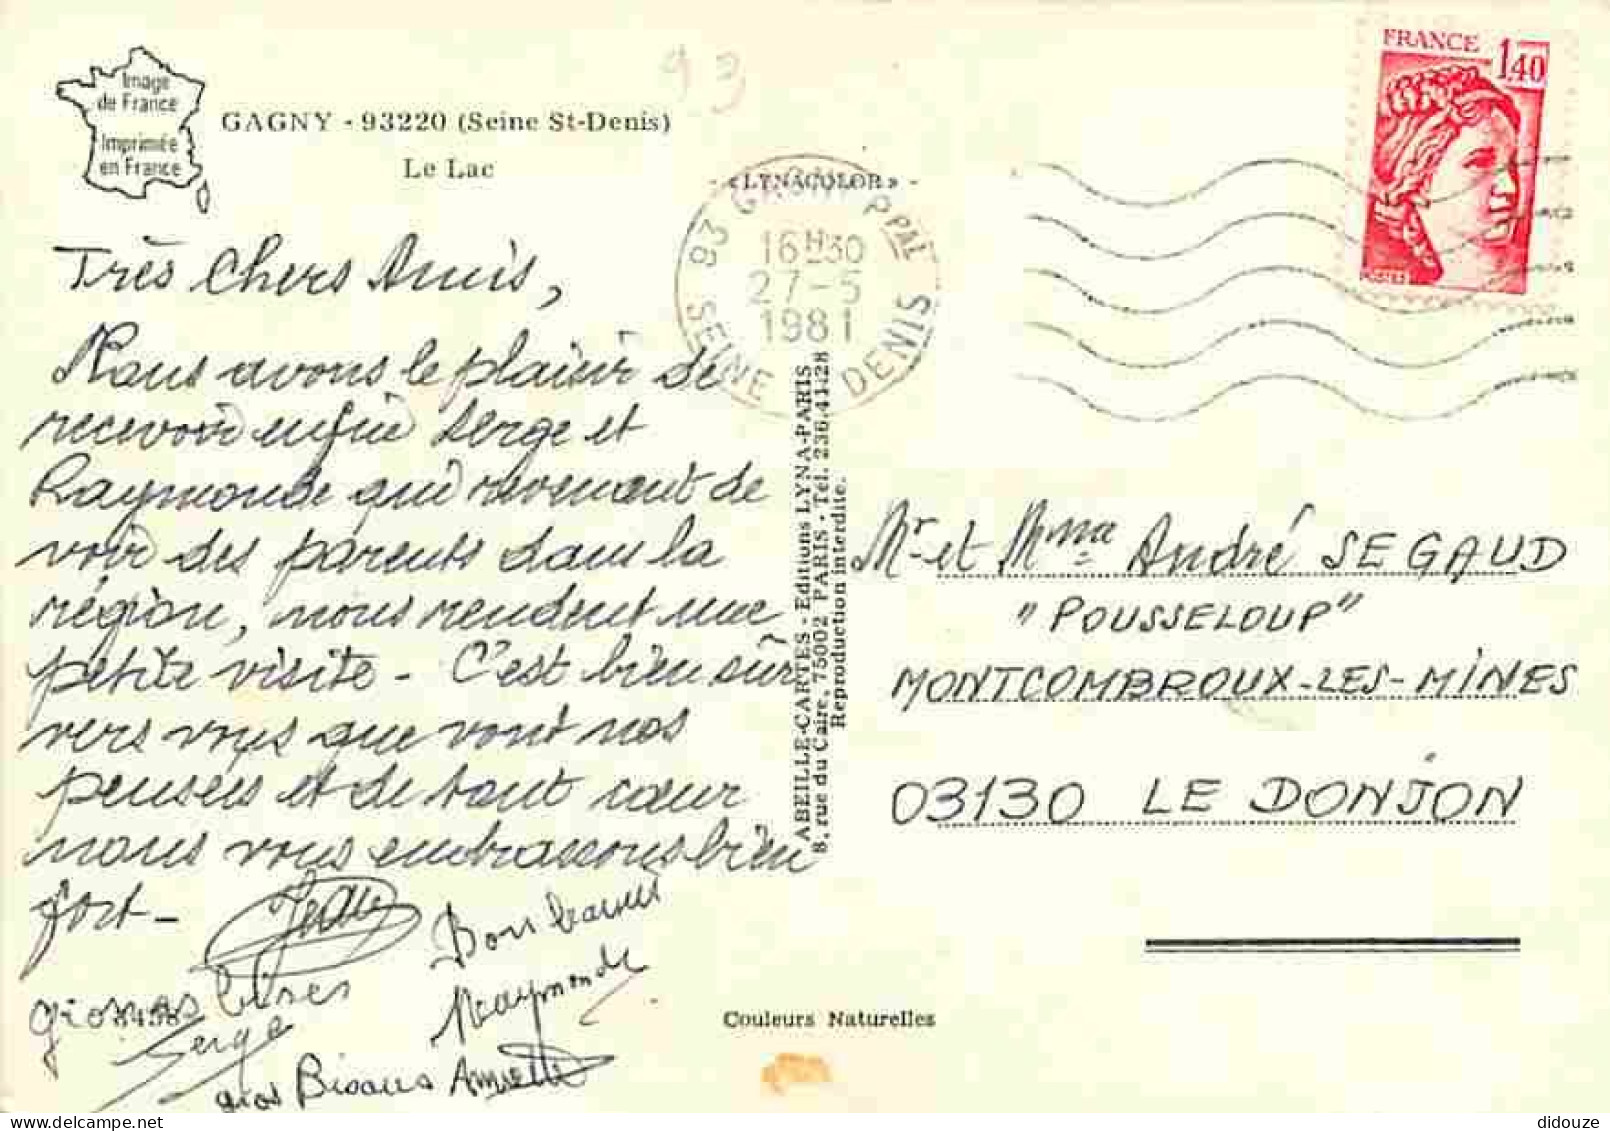 Image
de France
Imprimée
en France
GAGNY - 93220 (Seine St-Denis)
Le Lac
93
«LYNACOLOR»
28 GAGNY PPAL
16H30
27-5
1981
SEINE DENIS
FRANCE
1,40
POSTES
Très Chers Amis,
Nous avons le plaisir de
recevoir enfin Serge et
Raymonde qui revenant de
voir des parents dans la
région, nous rendent une
petite visite - C'est bien sûr
vers vous que vont nos
pensées et de tout cœur
nous vous embrassons bien
fort -
Jean
Bons baisers
Raymonde
Serge
gros Bisous
8, rue du Caire, 75002 PARIS - Tél. 236.41.28
ABEILLE-CARTES - Editions LYNA-PARIS
Reproduction interdite.
Mr et Mme André SEGAUD
"POUSSELOUP"
MONTCOMBROUX-LES-MINES
03130 LE DONJON
Couleurs Naturelles
didouze